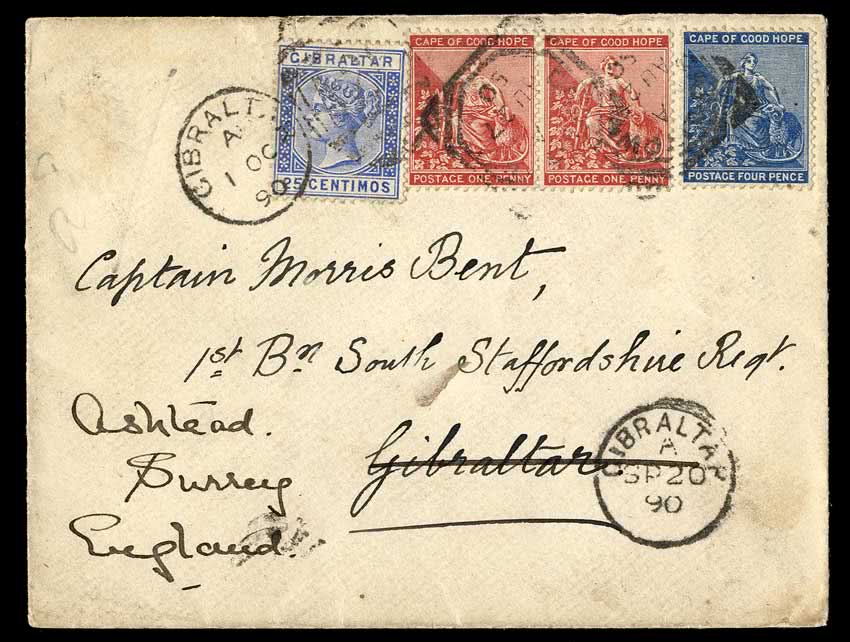 GIBRALTAR
25 CENTIMOS
CAPE OF GOOD HOPE
POSTAGE ONE PENNY
CAPE OF GOOD HOPE
POSTAGE ONE PENNY
CAPE OF GOOD HOPE
POSTAGE FOUR PENCE
GIBRALTAR
A
1 OC
90
Captain Morris Bent,
1st Bn South Staffordshire Regt.
Gibraltar
Ashtead.
Surrey
England.
GIBRALTAR
A
SP 20
90